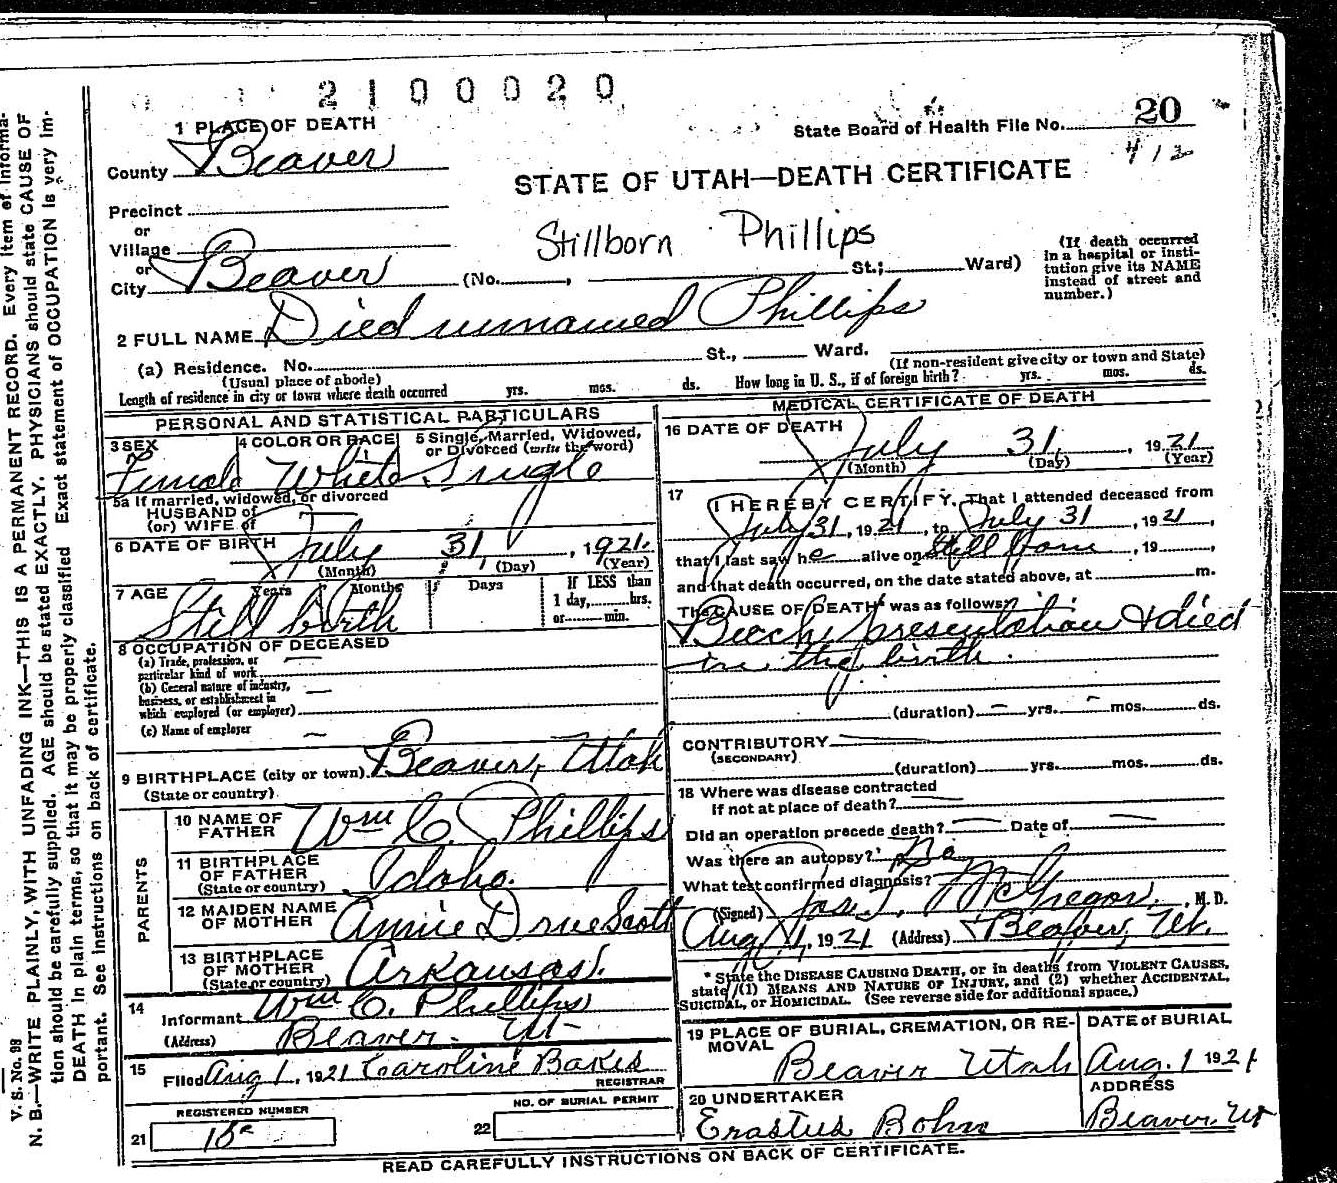 2100020
20
State Board of Health File No.
412
1 PLACE OF DEATH
County Beaver
STATE OF UTAH—DEATH CERTIFICATE
Precinct
or
Village
or
City Beaver (No. , St.; Ward)
Stillborn Phillips
(If death occurred
in a hospital or insti-
tution give its NAME
instead of street and
number.)
2 FULL NAME Died unnamed Phillips
(a) Residence. No. St., Ward.
(Usual place of abode)
(If non-resident give city or town and State)
Length of residence in city or town where death occurred yrs. mos. ds. How long in U. S., if of foreign birth? yrs. mos. ds.
PERSONAL AND STATISTICAL PARTICULARS
3 SEX
Female
4 COLOR OR RACE
White
5 Single, Married, Widowed,
or Divorced (write the word)
Single
5a If married, widowed, or divorced
HUSBAND of
(or) WIFE of
6 DATE OF BIRTH July 31, 1921.
(Month) (Day) (Year)
7 AGE Years Months Days
If LESS than
1 day, hrs.
or min.
Still birth
8 OCCUPATION OF DECEASED
(a) Trade, profession, or
particular kind of work
(b) General nature of industry,
business, or establishment in
which employed (or employer)
(c) Name of employer
9 BIRTHPLACE (city or town) Beaver, Utah
(State or country)
PARENTS
10 NAME OF
FATHER Wm C. Phillips
11 BIRTHPLACE
OF FATHER
(State or country) Idaho.
12 MAIDEN NAME
OF MOTHER Annie Drue Scott
13 BIRTHPLACE
OF MOTHER
(State or country) Arkansas.
14
Informant Wm C. Phillips
(Address) Beaver Ut
15
Filed Aug 1, 1921 Caroline Bakes
REGISTRAR
REGISTERED NUMBER
21
NO. OF BURIAL PERMIT
22
MEDICAL CERTIFICATE OF DEATH
16 DATE OF DEATH July 31, 1921
(Month) (Day) (Year)
17 I HEREBY CERTIFY, That I attended deceased from
July 31, 1921, to July 31, 1921,
that I last saw he alive on Still born, 19 ,
and that death occurred, on the date stated above, at m.
The CAUSE OF DEATH* was as follows:
Breech presentation & died
in the birth.
(duration) yrs. mos. ds.
CONTRIBUTORY
(SECONDARY)
(duration) yrs. mos. ds.
18 Where was disease contracted
if not at place of death?
Did an operation precede death? Date of
Was there an autopsy? No
What test confirmed diagnosis?
(Signed) Jas. T. McGregor, M. D.
Aug 1, 1921 (Address) Beaver, Ut.
* State the DISEASE CAUSING DEATH, or in deaths from VIOLENT CAUSES,
state (1) MEANS AND NATURE OF INJURY, and (2) whether ACCIDENTAL,
SUICIDAL, or HOMICIDAL. (See reverse side for additional space.)
19 PLACE OF BURIAL, CREMATION, OR RE-
MOVAL
Beaver Utah
DATE of BURIAL
Aug. 1 1921
20 UNDERTAKER
Erastus Bohn
ADDRESS
Beaver, Ut
READ CAREFULLY INSTRUCTIONS ON BACK OF CERTIFICATE.
V. S. No. 98
N. B.—WRITE PLAINLY, WITH UNFADING INK—THIS IS A PERMANENT RECORD. Every item of informa-
tion should be carefully supplied. AGE should be stated EXACTLY. PHYSICIANS should state CAUSE OF
DEATH in plain terms, so that it may be properly classified. Exact statement of OCCUPATION is very im-
portant. See instructions on back of certificate.